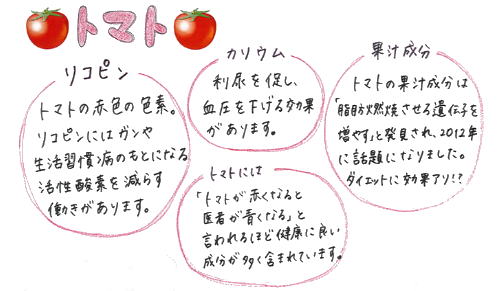 トマト
リコピン
トマトの赤色の色素。
リコピンにはガンや
生活習慣病のもとになる
活性酸素を減らす
働きがあります。
カリウム
利尿を促し、
血圧を下げる効果
があります。
果汁成分
トマトの果汁成分は
「脂肪燃焼させる遺伝子を
増やす」と発見され、2012年
に話題になりました。
ダイエットに効果アリ!?
トマトには
「トマトが赤くなると
医者が青くなる」と
言われるほど健康に良い
成分が多く含まれています。